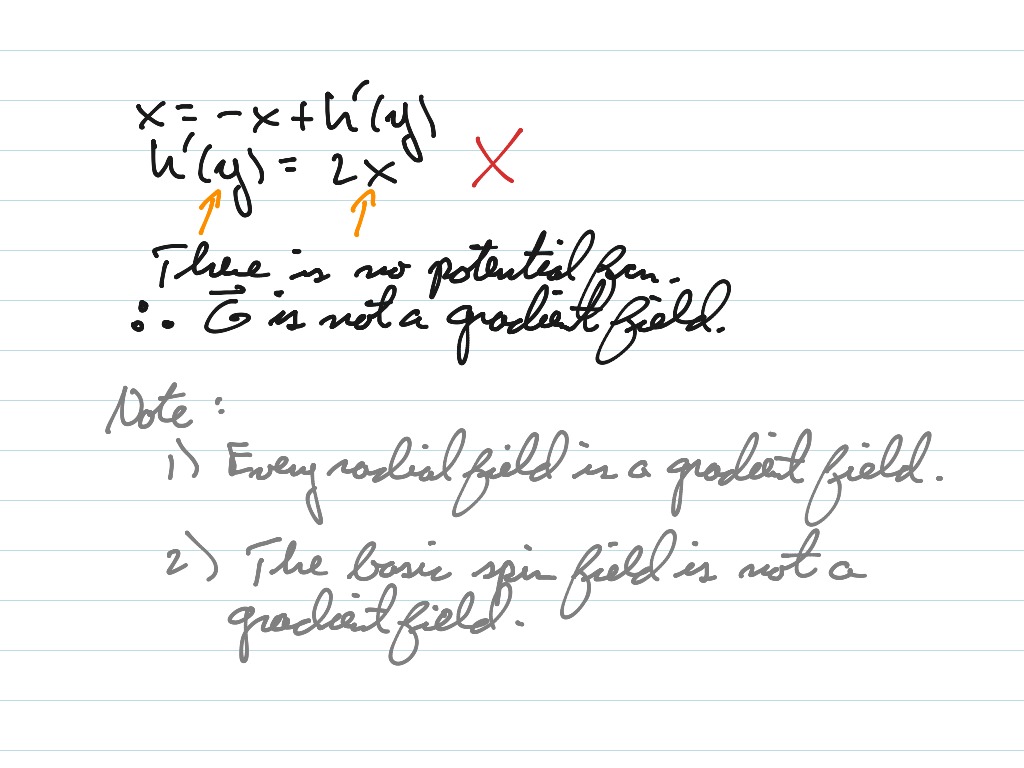 x = -x + h'(y)
h'(y) = 2x X
There is no potential fcn.
∴ G⃗ is not a gradient field.
Note:
1) Every radial field is a gradient field.
2) The basic spin field is not a
gradient field.